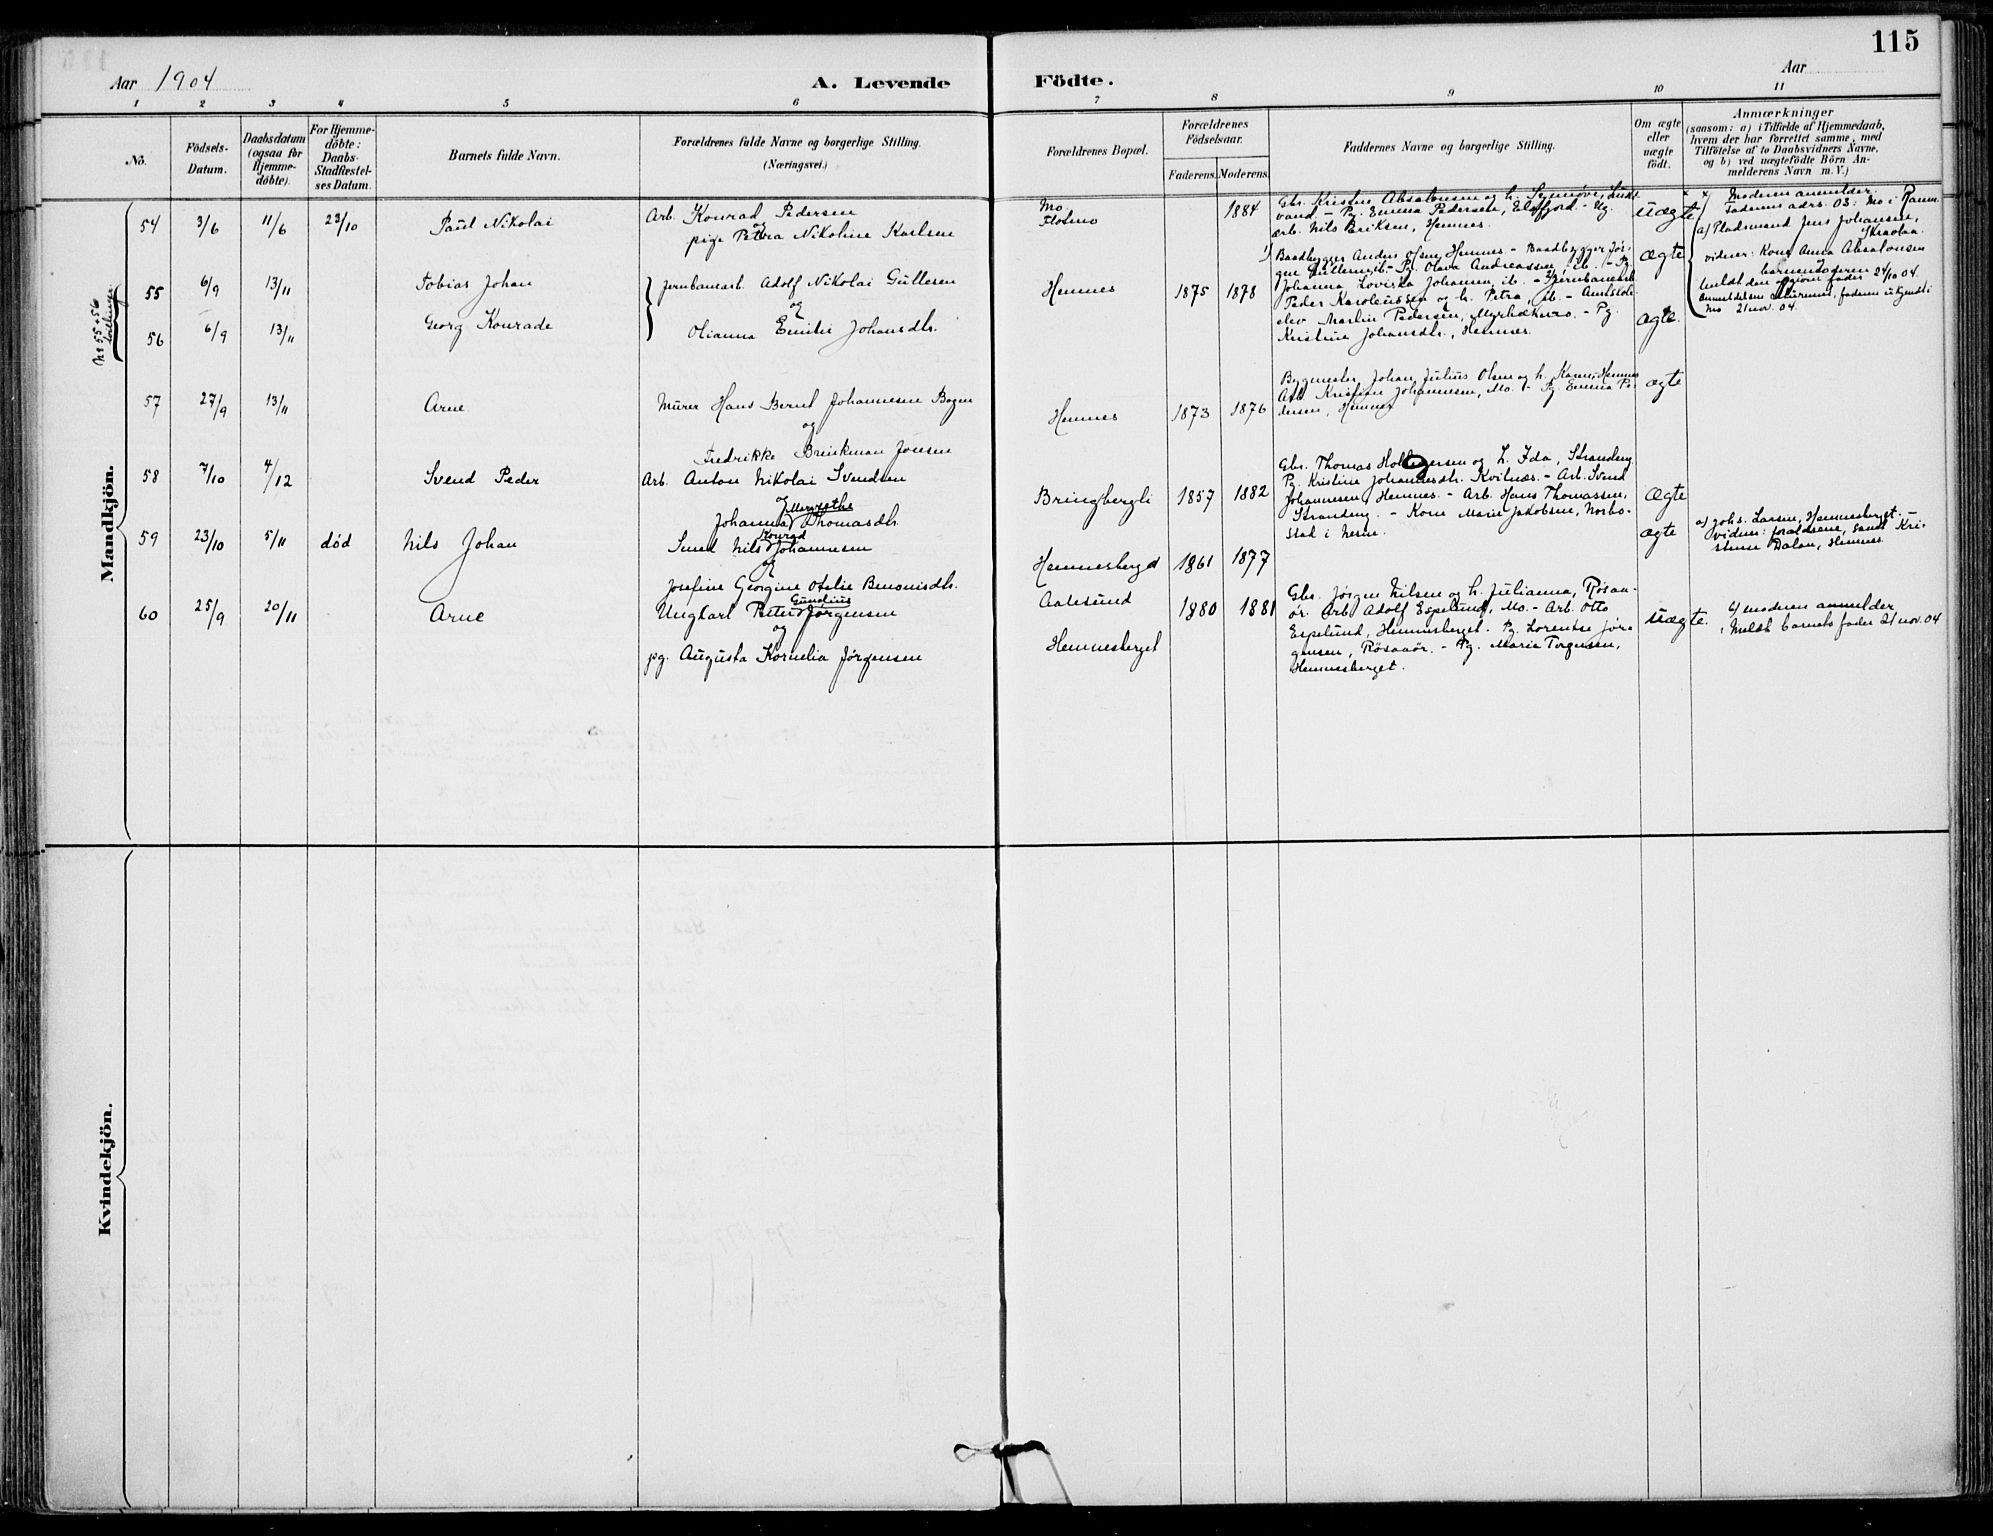 115
Aar 1904
A. Levende
Födte.
Aar
1 2 3 4 5 6 7 8 9 10 11
No.
Födsels-
Datum.
Daabsdatum
(ogsaa for
Hjemme-
döbte).
For Hjemme-
döbte:
Daabs-
Stadfæstel-
ses Datum.
Barnets fulde Navn.
Forældrenes fulde Navne og borgerlige Stilling.
(Næringsvei.)
Forældrenes Bopæl.
Forældrenes
Födselsaar.
Faderens. Moderens.
Faddernes Navne og borgerlige Stilling.
Om ægte
eller
uægte
födt.
Anmærkninger
(saasom: a) i Tilfælde af Hjemmedaab,
hvem der har forrettet samme, med
Tilföielse af to Daabsvidners Navne,
og b) ved uægtefödte Börn An-
melderens Navn m. V.)
Mandkjön.
54 3/6 11/6 23/10 Paul Nikolai
Arb. Konrad Pedersen
og
pige Petra Nikoline Karlsen
Mo
1884
Gbr. Kristen Absalonsen og h.
vand - Pg. Emma Pedersen, Elsfjord - Ug.
arb. Nils Eriksen, Hemnes.
uægte
Moderen anmelder.
Faderens adrs. 03: Mo i Ranen
a) Pladsmand Jens Johansen,
vidner: Kone Anna Absalonsen
barnemoderen
Meldt den opgivne fader 24/10 04.
Mo 21 nov. 04.
No 55 + 56
tvillinger
55 6/9 13/11 Tobias Johan
Jernbanearb. Adolf Nikolai Gullesen
og
Olianna Emilie Johansdtr.
Hemnes 1875 1878
1) Baadbygger Anders Olsen, Hemnes - Baadbygger Jör-
gen Gullesen, ib. - Pg. Olava Andreassen, ib. - Pg.
Johanna Loviska Johansen, ib. - Jernbanearb.
Peder Karoleussen og h. Petra, ib. - Amtskole-
elev Martin Pedersen, - Pg.
Kristine Johansdtr., Hemnes.
ægte
56 6/9 13/11 Georg Konrade
ægte.
57 27/9 13/11 Arne
Murer Hans Bernt Johannesen Bogen
og
Fredrikke Brinkman Jensen
Hemnes 1873 1876
Bygmester Johan Julius Olsen og h. Kanu, Hemnes
Arb. Kristian Johannesen, Mo. - Pg. Emma Pe-
dersen, Hemnes
ægte
58 7/10 4/12 Svend Peder
Arb. Anton Nikolai Svendsen
og
Johanna Thomasdtr.
Bringbergli 1857 1882
Gbr. Thomas Holbergersen og h. Ida, Strandeng
Pg. Kristine Johannesdtr. Kvilnæs. - Arb. Svend
Johannesen, Hemnes. - Arb. Hans Thomassen,
Strandeng. - Kone Marie Jakobsen,
i Nesne.
ægte
59 23/10 5/11 död Nils Johan
Konrad
Smed Nils Johannesen
og
Josefine Georgine Otelie Benonisdtr.
Hemnesberget 1861 1877
ægte
a) Johs. Larsen, Hemnesberget. -
vidner: forældrene, samt Kri-
stense Dalen, Hemnes
60 25/9 20/11 Arne
Gundius
Ungkarl Peter Jörgensen
og
pg. Augusta Kornelia Jörgensen
Aalesund
Hemnesberget
1880 1881
Gbr. Jörgen Nilsen og h. Julianna, Rösaa-
ör. Arb. Adolf Espelund, Mo. - Arb. Otto
Espelund, Hemnesberget. Pg. Lorentse Jör-
gensen, Rösaaör. - Pg. Marie Torgersen,
Hemnesberget.
uægte.
b) moderen anmelder
Meldt barnets fader 21 nov. 04
Kvindekjön.